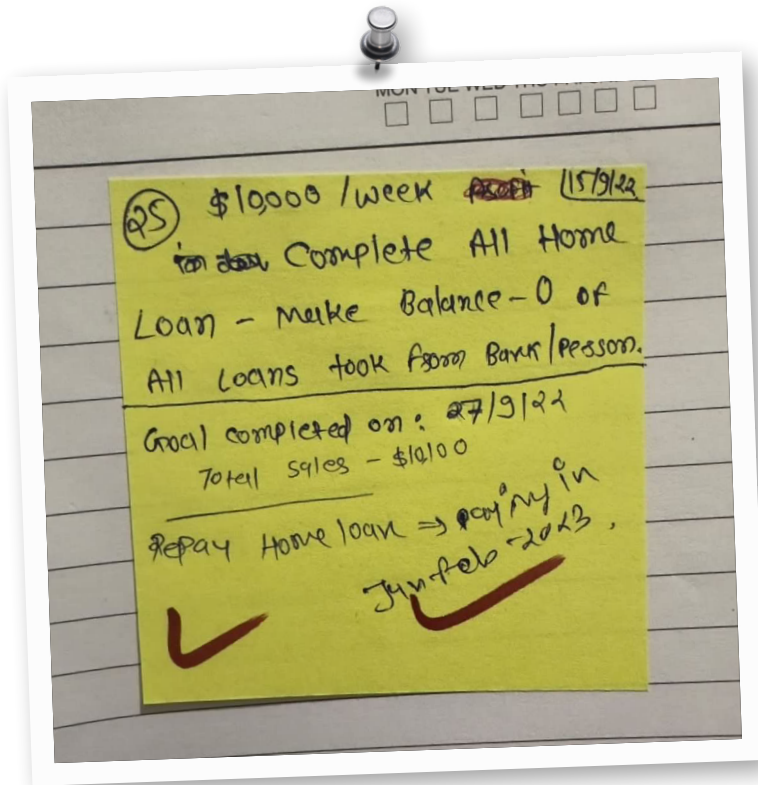 MON TUE WED THU FRI
25 $10,000 /week 15/9/22
Complete All Home
Loan - Make Balance - 0 of
All Loans took from Bank/Person.
Goal completed on : 27/9/22
Total Sales - $10,100
Repay Home loan ⇒ paying in
Jan Feb - 2023.